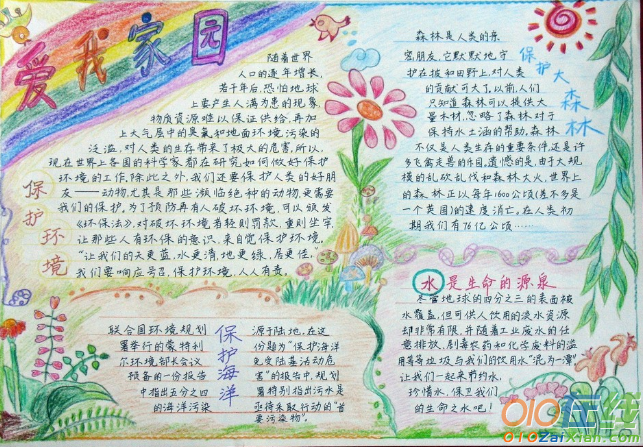 爱我家园
随着世界
人口的逐年增长,
若干年后,恐怕地球
上要产生人满为患的现象,
物质资源难以保证供给,再加
上大气层中的臭氧和地面环境污染的
泛滥,对人类的生存带来了极大的危害,所以,
现在世界上各国的科学家都在研究如何做好保护
环境的工作,除此之外,我们还要保护人类的好朋
友——动物,尤其是那些濒临绝种的动物更需要
我们的保护。为了预防再有人破坏环境,可以颁发
《环保法》,对破坏环境者轻则罚款,重则坐牢,
让那些人有环保的意识,来自觉保护环境,
“让我们的天更蓝,水更清,地更绿,居更佳,
我们要响应号召,保护环境,人人有责。
保护环境
森林是人类的亲
密朋友,它默默地守
护在坡和田野上,对人类
的贡献可大了,以前,人们
只知道森林可以提供大
量木材,忽略了森林对于
保持水土涵的帮助,森林
不仅是人类生存的重要条件,还是许
多飞禽走兽的乐园,遗憾的是,由于大规
模的乱砍乱伐和森林大火,世界上
的森林正以每年1600公顷(差不多是
一个英国)的速度消亡,在人类初
期我们有76亿公顷……
保护大森林
联合国环境规划
署举行的蒙特利
尔环境部长会议
预备的一份报告
中指出五分之四
的海洋污染
保护海洋
源于陆地,在这
份题为“保护海洋
免受陆基活动危
害”的报告中,规划
署特别指出污水是
亟待采取行动的“首
要污染物”。
水是生命的源泉
尽管地球的四分之三的表面被
水覆盖,但可供人饮用的淡水资源
却非常有限,并随着工业废水的任
意排放,剧毒农药和化学废料的滥
用等各垃圾与我们的饮用水“混为一潭”
让我们一起来节约水,
珍惜水,保卫我们
的生命之水吧!
010在线
010ZaiXian.com